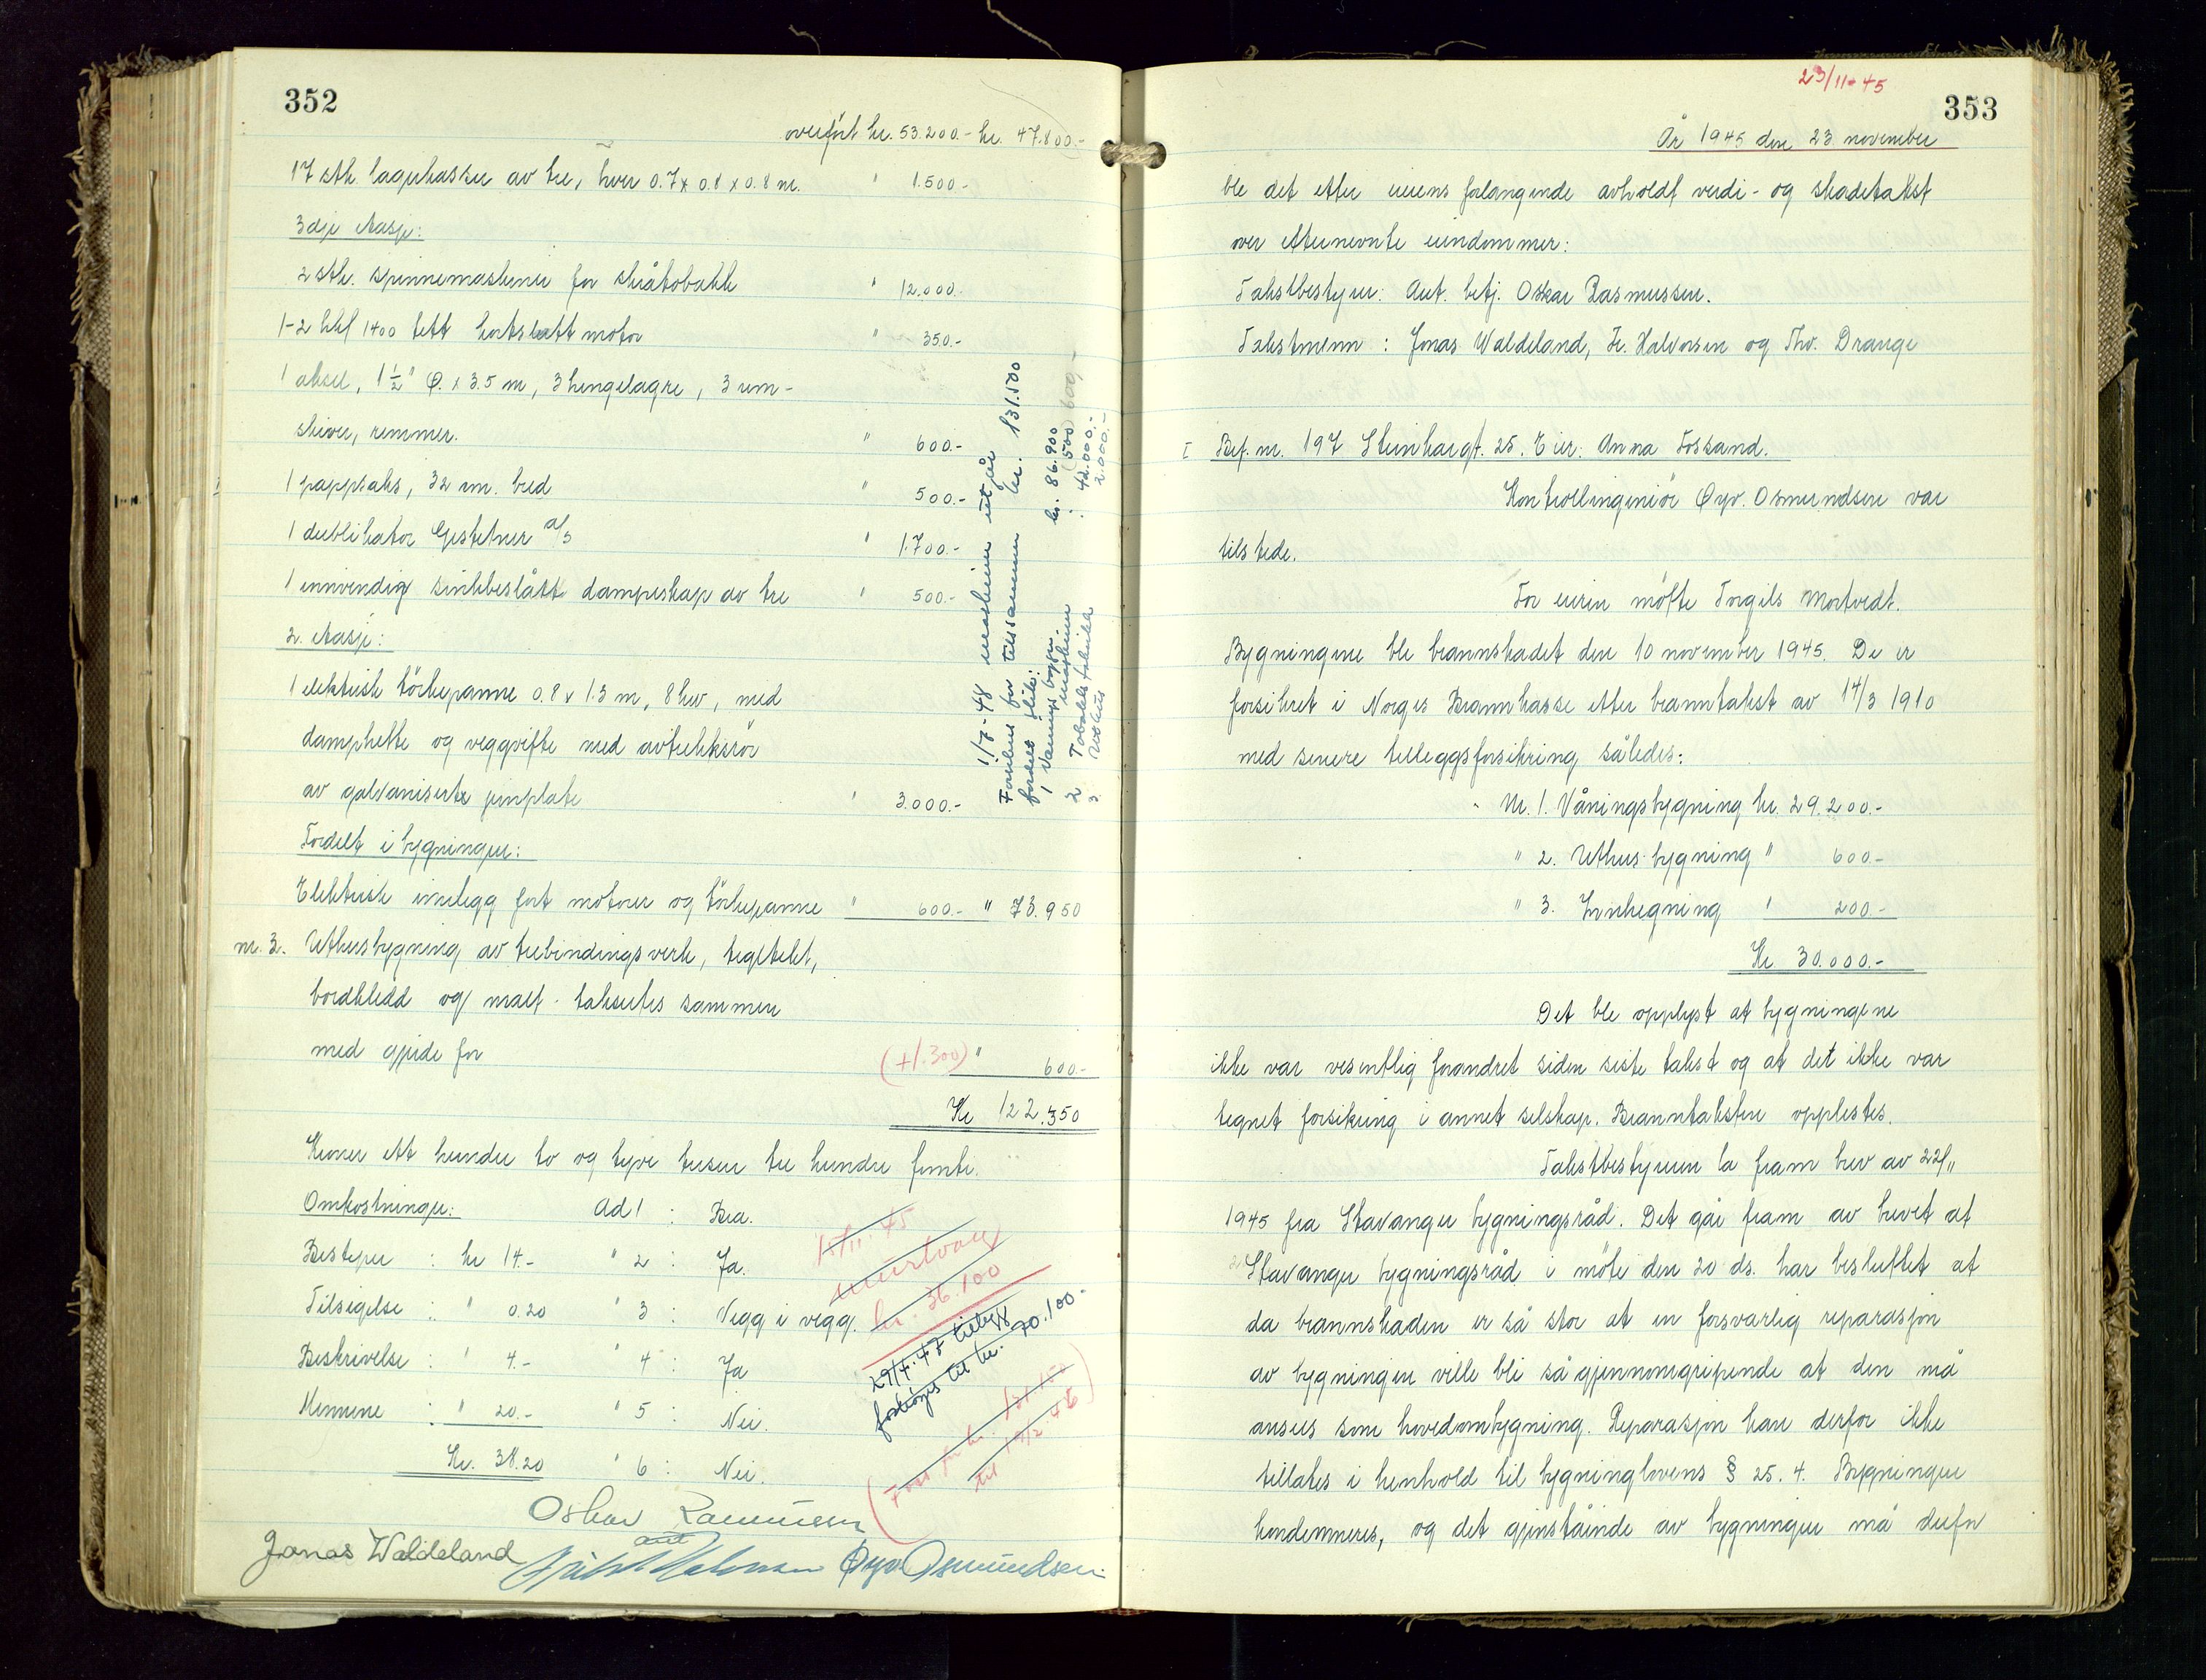 352
overfört kr. 53.200.- kr. 47.800.-
17 stk. lagerkasser av tre, hver 0.7 x 0.8 x 0.8 m. " 1.500.-
3dje etasje:
2 stk. spinnemaskiner for skråtobakk " 12.000.-
1-2 hkf 1400 tett kortslutt motor " 350.-
1 aksel, 1 1/2" Ø. x 3.5 m, 3 hengelagre, 3 rem-
skiver, remmer. " 600.-
1 pappsaks, 32 cm. bred " 500.-
1 dublikator Gestetner a/s " 1.700.-
1 innvendig sinkbeslått dampeskap av tre " 500.-
2. etasje:
1 elektrisk törkepanne 0.8 x 1.3 m, 8 kw, med
damphette og veggvifte med avtrekksrör
av galvanisert jernplate " 3.000.-
Fordelt i bygningen:
Elektrisk innlegg fort motorer og törkepanne " 600.- " 73.950
nr. 3. Uthusbygning av trebindingsverk, teglteket,
bordkledd og malt - takseres sammen
med gjerde for (+1.300) " 600.-
Kr 122.350
Kroner ett hundre to og tyve tusen tre hundre femti.
Omkostninger: Ad 1 : Bra.
Bestyrer : kr 14.- " 2 : Ja.
Tilsigelse : " 0.20 " 3 : Vegg i vegg.
Beskrivelse : " 4.- " 4 : Ja
Mennene : " 20.- " 5 : Nei.
Kr. 38.20 " 6 : Nei.
kr. 36.100
29/4.47 tillegg
forhöyes til kr. 70.100.-
Oskar Rasmussen
aut
Jonas Waldeland Øyv. Osmundsen
1/7-48 maskiner utgår
Forsikres for tilsammen kr. 131.500
fordelt slik:
1 Vånings bygn. kr. 86.900
2 Tobakksfabrikk " 42.000.-
3 Uthus 2.000.-
23/11-45
353
År 1945 den 23 november
ble det etter eierens forlangende avholdt verdi- og skadetakst
over etternevnte eiendommer:
Takstbestyrer: Aut. betj. Oskar Rasmussen.
Takstmenn : Jonas Waldeland, Fr. Halvorsen og Thv. Drange
I Bef. nr. 197 Steinkargt. 25. Eier: Anna Fossand.
Kontrollingeniör Øyv. Osmundsen var
tilstede.
For eieren møtte Torgils Mortvedt.
Bygningene ble brannskadet den 10 november 1945. De er
forsikret i Norges Brannkasse etter branntakst av 14/3 1910
med senere tilleggsforsikring således:
Nr. 1. Våningsbygning kr. 29.200.-
" 2. Uthusbygning " 600.-
" 3. Innhegning " 200.-
Kr 30.000.-
Det ble opplyst at bygningene
ikke var vesentlig forandret siden siste takst og at det ikke var
tegnet forsikring i annet selskap. Branntaksten opplestes.
Takstbestyreren la fram brev av 22/11
1945 fra Stavanger bygningsråd. Det går fram av brevet at
Stavanger bygningsråd i möte den 20 ds. har besluttet at
da brannskaden er så stor at en forsvarlig reparasjon
av bygningen ville bli så gjennomgripende at den må
ansees som hovedombygning. Reparasjon kan derfor ikke
tillates i henhold til bygninglovens § 25. 4. Bygningen
kondemneres, og det gjenstående av bygningen må derfor